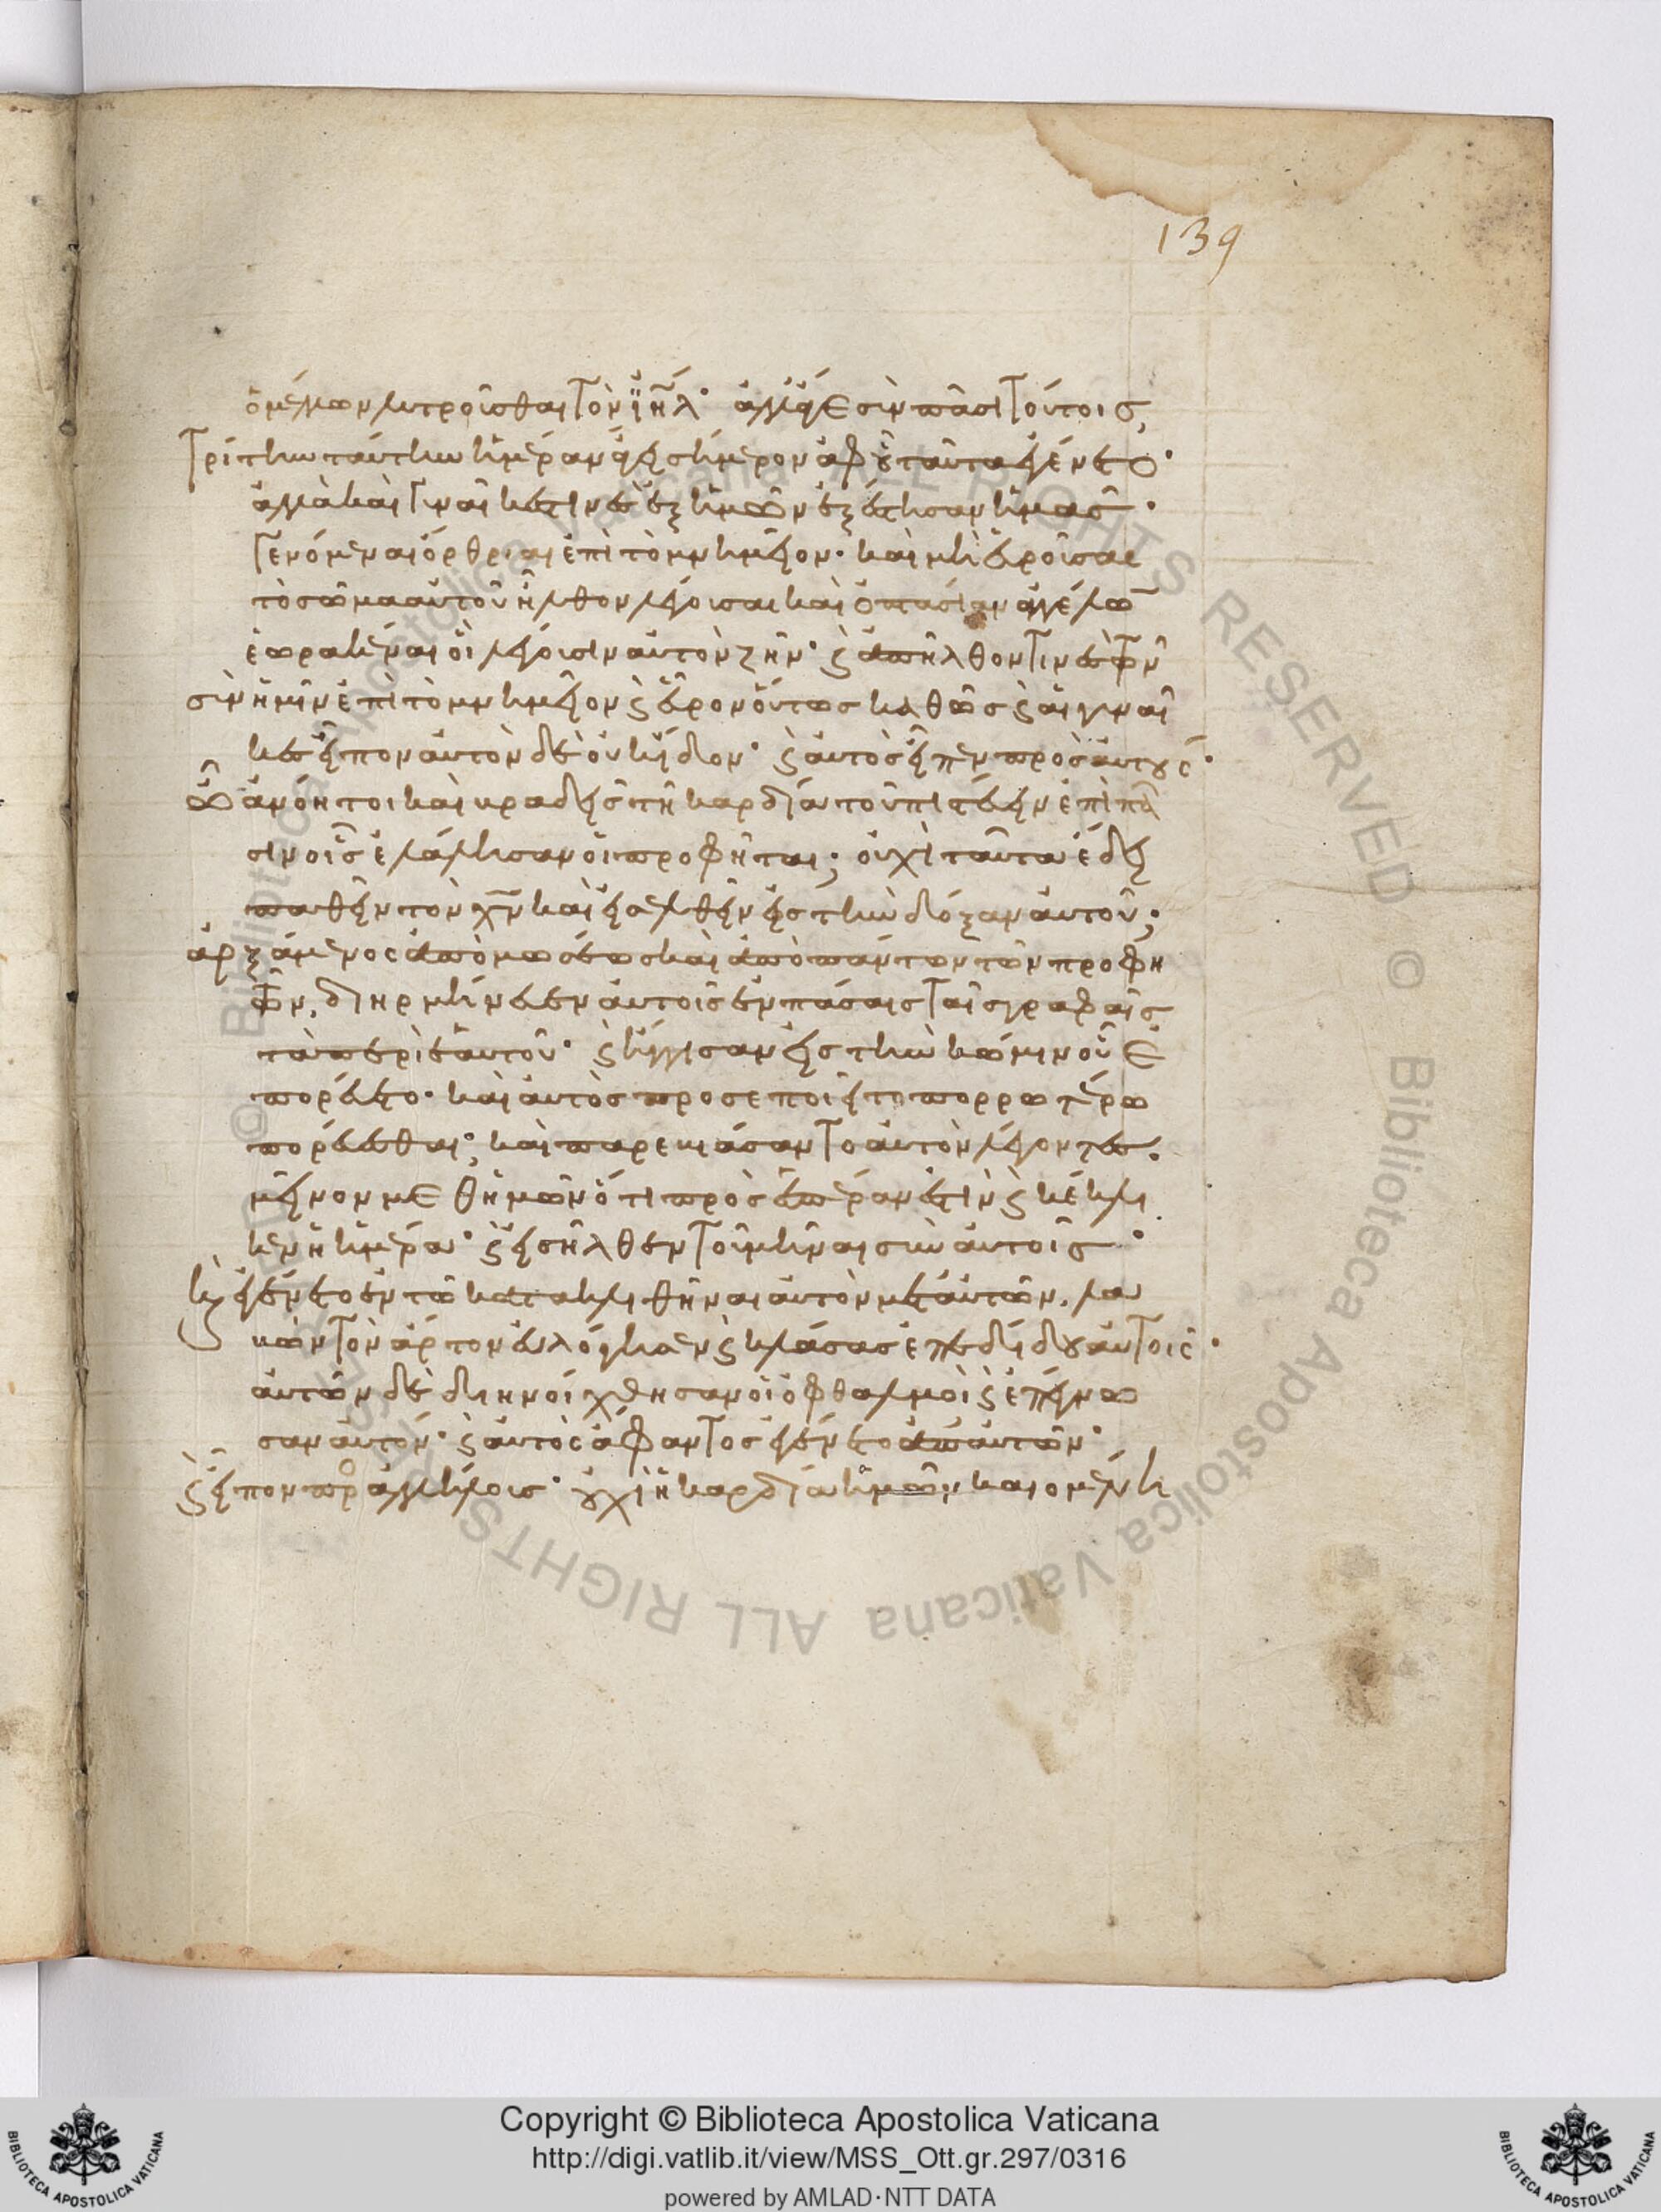 139
ὁ μέλλων λυτροῦσθαι τὸν ἰη̄λ· ἀλλά γε σὺν πᾶσι τούτοις,
τρίτην ταύτην ἡμέραν ἄγει σήμερον ἀφ οὗ ταῦτα ἐγένετο·
ἀλλὰ καὶ γυναῖκές τινες ἐξ ἡμῶν ἐξέστησαν ἡμᾶς·
γενόμεναι ὄρθριαι ἐπὶ τὸ μνημεῖον· καὶ μὴ εὑροῦσαι
τὸ σῶμα αὐτοῦ ἦλθον λέγουσαι καὶ ὀπτασίαν ἀγγέλων
ἑωρακέναι οἳ λέγουσιν αὐτὸν ζῆν· ϗ ἀπῆλθον τινες τῶν
σὺν ἡμῖν ἐπὶ τὸ μνημεῖον ϗ εὗρον οὕτως καθὼς ϗ αἱ γυναῖ
κες εἶπον αὐτὸν δὲ οὐκ εἶδον· ϗ αὐτὸς εἶπεν πρὸς αὐτούς·
ὦ ἀνόητοι καὶ βραδεῖς τῇ καρδίᾳ τοῦ πιστεύειν ἐπὶ πᾶ
σιν οἷς ἐλάλησαν οἱ προφῆται; οὐχὶ ταῦτα ἔδει
παθεῖν τὸν χ̄ν καὶ εἰσελθεῖν εἰς τὴν δόξαν αὐτοῦ;
ἀρξάμενος ἀπὸ μωσέως καὶ ἀπὸ πάντων τῶν προφη
τῶν, διηρμήνευεν αὐτοῖς ἐν πάσαις ταῖς γραφαῖς
τὰ περὶ ἑαυτοῦ· ϗ ἤγγισαν εἰς τὴν κώμην οὗ ἐ
πορεύετο· καὶ αὐτὸς προσεποιεῖτο πορρωτέρω
πορεύεσθαι; καὶ παρεβιάσαντο αὐτὸν λέγοντες.
μεῖνον μεθ ἡμῶν ὅτι πρὸς ἑσπέραν ἐστὶν ϗ κέκλι
κεν ἡ ἡμέρα· ϗ εἰσῆλθεν τοῦ μεῖναι σὺν αὐτοῖς·
ϗ ἐγένετο ἐν τῷ κατακλιθῆναι αὐτὸν μετ αὐτῶν. λα
βὼν τὸν ἄρτον εὐλόγησεν ϗ κλάσας ἐπεδίδου αὐτοῖς·
αὐτῶν δὲ διηνοίχθησαν οἱ ὀφθαλμοὶ ϗ ἐπέγνω
σαν αὐτόν· ϗ αὐτὸς ἄφαντος ἐγένετο ἀπ αὐτῶν·
ϗ εἶπον πρὸ ἀλλήλους· οὐχὶ ἡ καρδία ἡμῶν καιομένη
Copyright © Biblioteca Apostolica Vaticana
http://digi.vatlib.it/view/MSS_Ott.gr.297/0316
powered by AMLAD·NTT DATA
BIBLIOTECA APOSTOLICA VATICANA
BIBLIOTECA APOSTOLICA VATICANA
© Biblioteca Apostolica Vaticana ALL RIGHTS RESERVED © Biblioteca Apostolica Vaticana ALL RIGHTS RESERVED